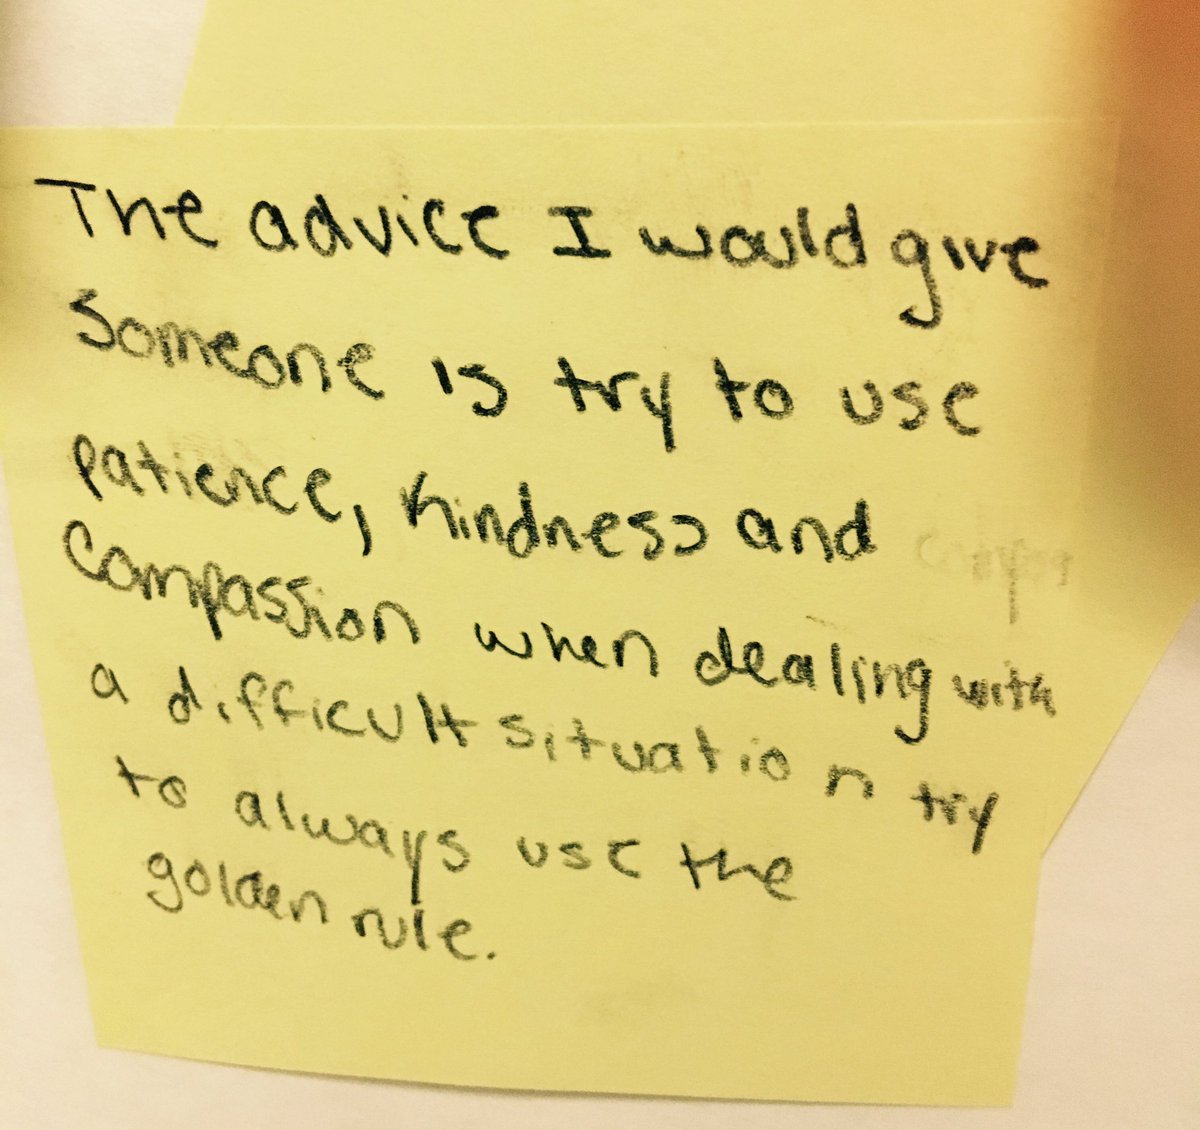 The advice I would give
someone is try to use
patience, kindness and
compassion when dealing with
a difficult situation try
to always use the
golden rule.